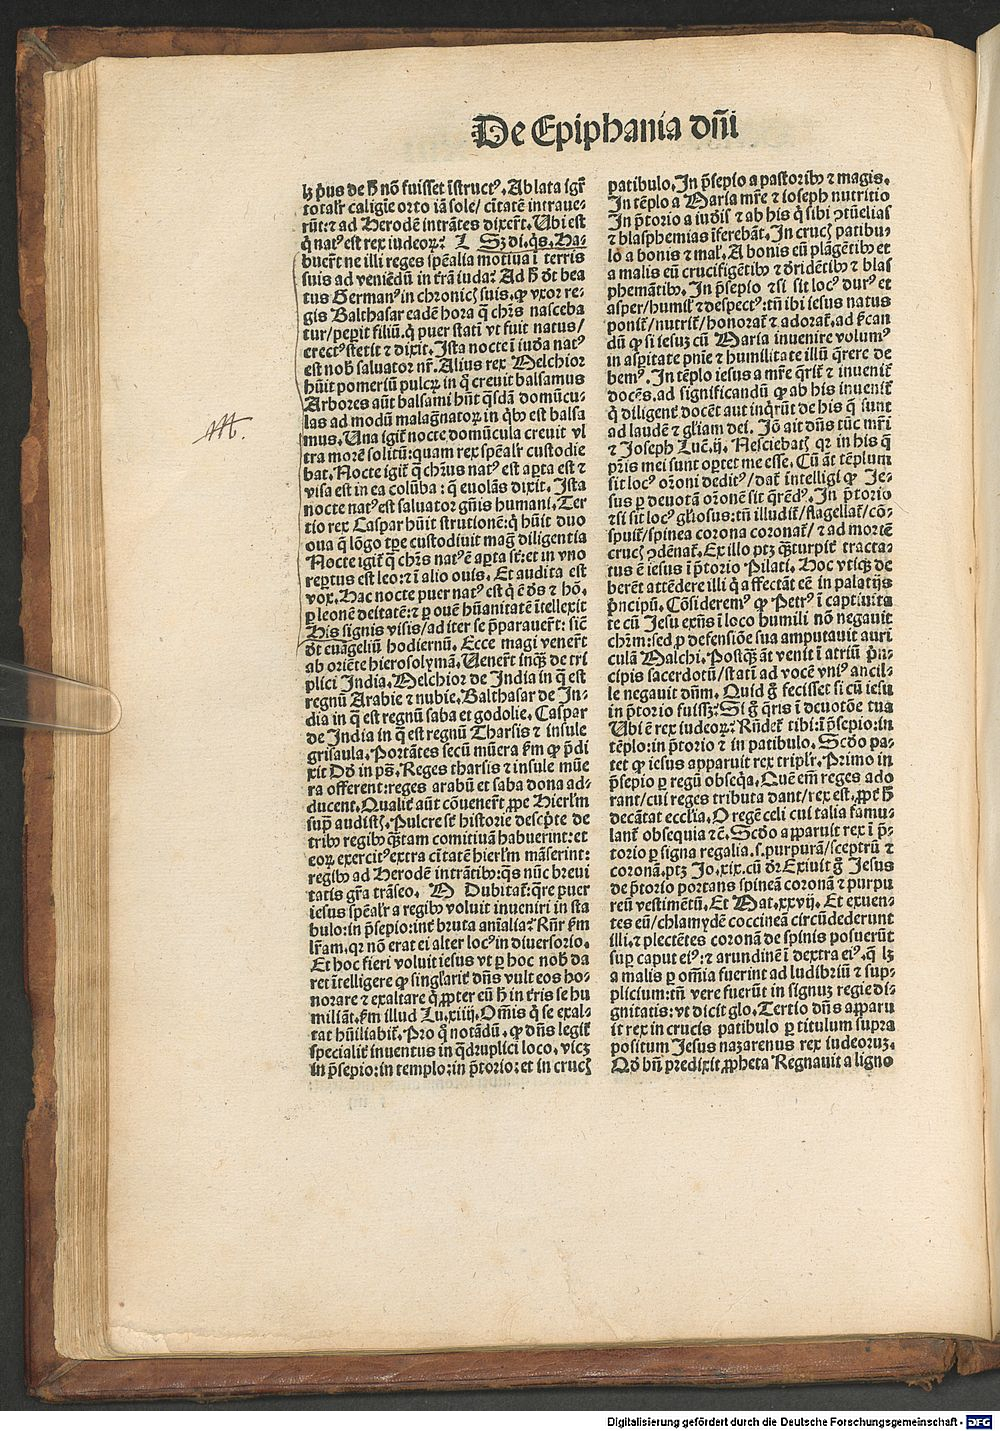 De Epiphania dñi
lꝫ p̃us de h̃ nõ fuisset ĩstructꝰ. Ablata igr̃
totalr̃ caligie orto iã sole/ ciṽtatē intraue-
rūt: ⁊ ad Herodē intrãtes dixer̃t. Ubi est
q̃ natꝰ est rex iudeoꝝ? L Sꝫ di. q̃s. Ha-
buer̃t ne illi reges spẽalia motiua ĩ terris
suis ad veniēdū in tr̃ã iuda? Ad h̃ ð̃t bea
tus Germanꝰ in chronicꝭ suis. ꝙ vxor re-
gis Balthasar eadē hora q̃ chr̃s nasceba
tur/ peꝑit filiū. q̃ puer statĩ vt fuit natus/
erectꝰ stetit ⁊ dixit. Ista nocte ĩ iuda natꝰ
est nob̃ saluator nr̃. Alius rex Melchior
hūit pomeriū pulcꝝ in q̃ creuit balsamus
Arbores aūt balsami hñt q̃sdã domūcu-
las ad modū malag̃natoꝝ in q̃bꝰ est balsa
mus. Una igit̃ nocte domūcula creuit vl
tra morē solitū: quam rex spẽalr̃ custodie
bat. Nocte igit̃ q̃ chr̃us natꝰ est aꝑta est ⁊
visa est in ea colūba: q̃ euolãs dixit. Ista
nocte natꝰ est saluator gñis humani. Ter
tio rex Caspar hūit strutionē: q̃ hūit duo
oua q̃ lõgo tꝑe custodiuit mag̃ diligentia
Nocte igit̃ q̃ chr̃s natꝰ ē aꝑta st̃: et in vno
reꝑtus est leo: ⁊ ĩ alio ouis. Et audita est
vox. Hac nocte puer natꝰ est q̃ ē dẽs ⁊ hõ.
ꝑ leonē deitatē: ⁊ ꝑ ouē hūanitatē ĩtellexit
His signis visis/ ad iter se p̃parauer̃t: siẽ
ð̃t euãgeliū hodiernū. Ecce magi vener̃t
ab oriēte hierosolymã. Uener̃t inqꝫ de tri
plici India. Melchior de India in q̃ est
regnū Arabie ⁊ nubie. Balthasar de In-
dia in q̃ est regnū saba et godolie. Caspar
de India in q̃ est regnū Tharsis ⁊ insule
grisaula. Portãtes secū mũera s̃m ꝙ p̃di
xit Dð in ps̃. Reges tharsis ⁊ insule mũe
ra offerent: reges arabū et saba dona ad-
ducent. Qualit̃ aūt cõuener̃t ꝓpe Hierl̃m
sup̃ audistꝭ. Pulcre st̃ historie descp̃te de
tribꝰ regibꝰ q̃stam comitiuã habuerint: et
eoꝝ exercitꝰ extra ciṽtatē hierl̃m mãserint:
regibꝰ ad Herodē intrãtibꝰ: q̃s nũc breui
tatis gr̃a trãseo. M Dubitat̃: q̃re puer
iesus spẽalr̃ a regibꝰ voluit inueniri in sta
bulo: in p̃sepio: int̃ bruta aĩalia? Rñr̃ s̃m
lr̃am. qꝛ nõ erat ei alter locꝰ in diuersorio.
Et hoc fieri voluit iesus vt ꝑ hoc nob̃ da
ret ĩtelligere ꝙ singl̃arit̃ dñs vult eos ho-
norare ⁊ exaltare q̃ ꝓpter eū h̃ in tr̃is se hu
miliãt. s̃m illud Lu. xiiij. Om̃is q̃ se exal-
tat hũiliabit̃. Pro q̃ notãdū. ꝙ dñs legit̃
specialit̃ inuentus in q̃druplici loco. vicꝫ
in p̃sepio: in templo: in p̃torio: et in crucꝭ
patibulo. In p̃sepio a pastoribꝰ ⁊ magis.
In tēplo a Maria mr̃e ⁊ ioseph nutritio
In p̃torio a iud̃is ⁊ ab his q̃ sibi ꝯtũelias
⁊ blasphemias ĩferebãt. In crucꝭ patibu-
lo a bonis ⁊ mal̃. A bonis eū plãgētibꝰ et
a malis eū crucifigētibꝰ ⁊ d̃ridētibꝰ ⁊ blas
phemãtibꝰ. In p̃sepio ⁊si sit locꝰ durꝰ et
asper/ humil̃ ⁊ despectꝰ: tñ ibi iesus natus
ponit̃/ nutrit̃/ honorat̃ ⁊ adorat̃. ad s̃can
dū ꝙ si iesuꝫ cū Maria inuenire volumꝰ
in asꝑitate pñie ⁊ humilitate illū q̃rere de
bemꝰ. In tēplo iesus a mr̃e q̃rit̃ ⁊ inuenit̃
docẽs. ad significandū ꝙ ab his inuenit̃
q̃ diligent̃ docēt aut inq̃rūt de his q̃ sunt
ad laudē ⁊ gl̃iam dei. Jõ ait dñs tūc mr̃i
⁊ Joseph Luc̃. ij. Nesciebatꝭ qꝛ in his q̃
pr̃is mei sunt oꝑtet me esse. Cū aũt tēplum
sit locꝰ or̃oni deditꝰ/ dat̃ ĩntelligi ꝙ Je-
sus ꝑ deuotã or̃onē sit q̃rendꝰ. In p̃torio
⁊si sit locꝰ gl̃iosus: tñ illudit̃/ flagellat̃/ cõ-
spuit̃/ spinea corona coronat̃/ ⁊ ad mortē
crucꝭ ꝯdēnat̃. Ex illo ptꝫ q̃ꝫ turpit̃ tracta-
tus ē iesus ĩ p̃torio Pilati. Hoc vtiqꝫ de
berēt attēdere illi q̃ affectãt eẽ in palatijs
p̃ncipū. Cõsideremꝰ ꝙ Petrꝰ ĩ captiuita
te cū Jesu exñs ĩ loco humili nõ negauit
chr̃m: sed ꝓ defensiõe sua amputauit auri
culã Malchi. Postqꝫ aũt venit ĩ atriū p̃n-
cipis sacerdotū/ statĩ ad vocē vniꝰ ancil-
le negauit dñm. Quid g̃ fecisset si cū iesu
in p̃torio fuissꝫ? Si g̃ q̃ris ĩ deuotõe tua
Ubi ē rex iudeoꝝ? Rñdet̃ tibi: ĩ p̃sepio: in
tēplo: in p̃torio ⁊ in patibulo. Scd̃o pa-
tet ꝙ iesus apparuit rex triplr̃. Primo in
p̃sepio ꝑ regū obseq̃a. Quē em̃ reges ado
rant/ cui reges tributa dant/ rex est. ꝓpt̃ h̃
decãtat eccl̃ia. O regē celi cui talia famu-
lant̃ obsequia ⁊c̃. Scd̃o apparuit rex ĩ p̃-
torio ꝑ signa regalia. s. purpurã/ sceptrū ⁊
coronã. ptꝫ Jo. xix. cū dr̃ Exiuit g̃ Jesus
de p̃torio portans spineã coronã ⁊ purpu
reū vestimētū. Et Mat. xxvij. Et exuen-
tes eū/ chlamydē coccineã circūdederunt
illi. ⁊ plectētes coronã de spinis posuerūt
suꝑ caput eiꝰ: ⁊ arundinē ĩ dextra eiꝰ. q̃ lꝫ
a malis ꝑ om̃ia fuerint ad ludibriū ⁊ sup-
plicium: tñ vere fuerūt in signuꝫ regie di-
gnitatis: vt dicit glo. Tertio dñs apparu
it rex in crucis patibulo ꝑ titulum supra
positum Jesus nazarenus rex iudeoruꝫ.
Qð bñ predixit ꝓpheta Regnauit a ligno
M.
Digitalisierung gefördert durch die Deutsche Forschungsgemeinschaft - DFG